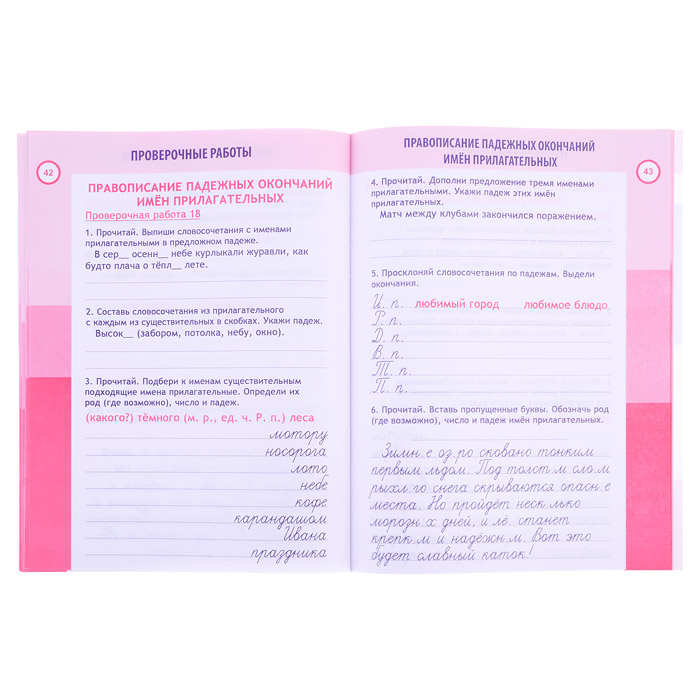 ПРОВЕРОЧНЫЕ РАБОТЫ
42
ПРАВОПИСАНИЕ ПАДЕЖНЫХ ОКОНЧАНИЙ
ИМЁН ПРИЛАГАТЕЛЬНЫХ
Проверочная работа 18
1. Прочитай. Выпиши словосочетания с именами
прилагательными в предложном падеже.
В сер__ осенн__ небе курлыкали журавли, как
будто плача о тёпл__ лете.
2. Составь словосочетания из прилагательного
с каждым из существительных в скобках. Укажи падеж.
Высок__ (забором, потолка, небу, окно).
3. Прочитай. Подбери к именам существительным
подходящие имена прилагательные. Определи их
род (где возможно), число и падеж.
(какого?) тёмного (м. р., ед. ч. Р. п.) леса
мотору
носорога
лото
небе
кофе
карандашом
Ивана
праздника
ПРАВОПИСАНИЕ ПАДЕЖНЫХ ОКОНЧАНИЙ
ИМЁН ПРИЛАГАТЕЛЬНЫХ
43
4. Прочитай. Дополни предложение тремя именами
прилагательными. Укажи падеж этих имён
прилагательных.
Матч между клубами закончился поражением.
5. Просклоняй словосочетания по падежам. Выдели
окончания.
И. п. любимый город любимое блюдо
Р. п.
Д. п.
В. п.
Т. п.
П. п.
6. Прочитай. Вставь пропущенные буквы. Обозначь род
(где возможно), число и падеж имён прилагательных.
Зимн. е оз. ро сковано тонким
первым льдом. Под толст. м сло. м
рыхл. го снега скрываются опасн. е
места. Но пройдёт неск. лько
морозн. х дней, и лё. станет
крепк. м и надёжн. м. Вот это
будет славный каток!